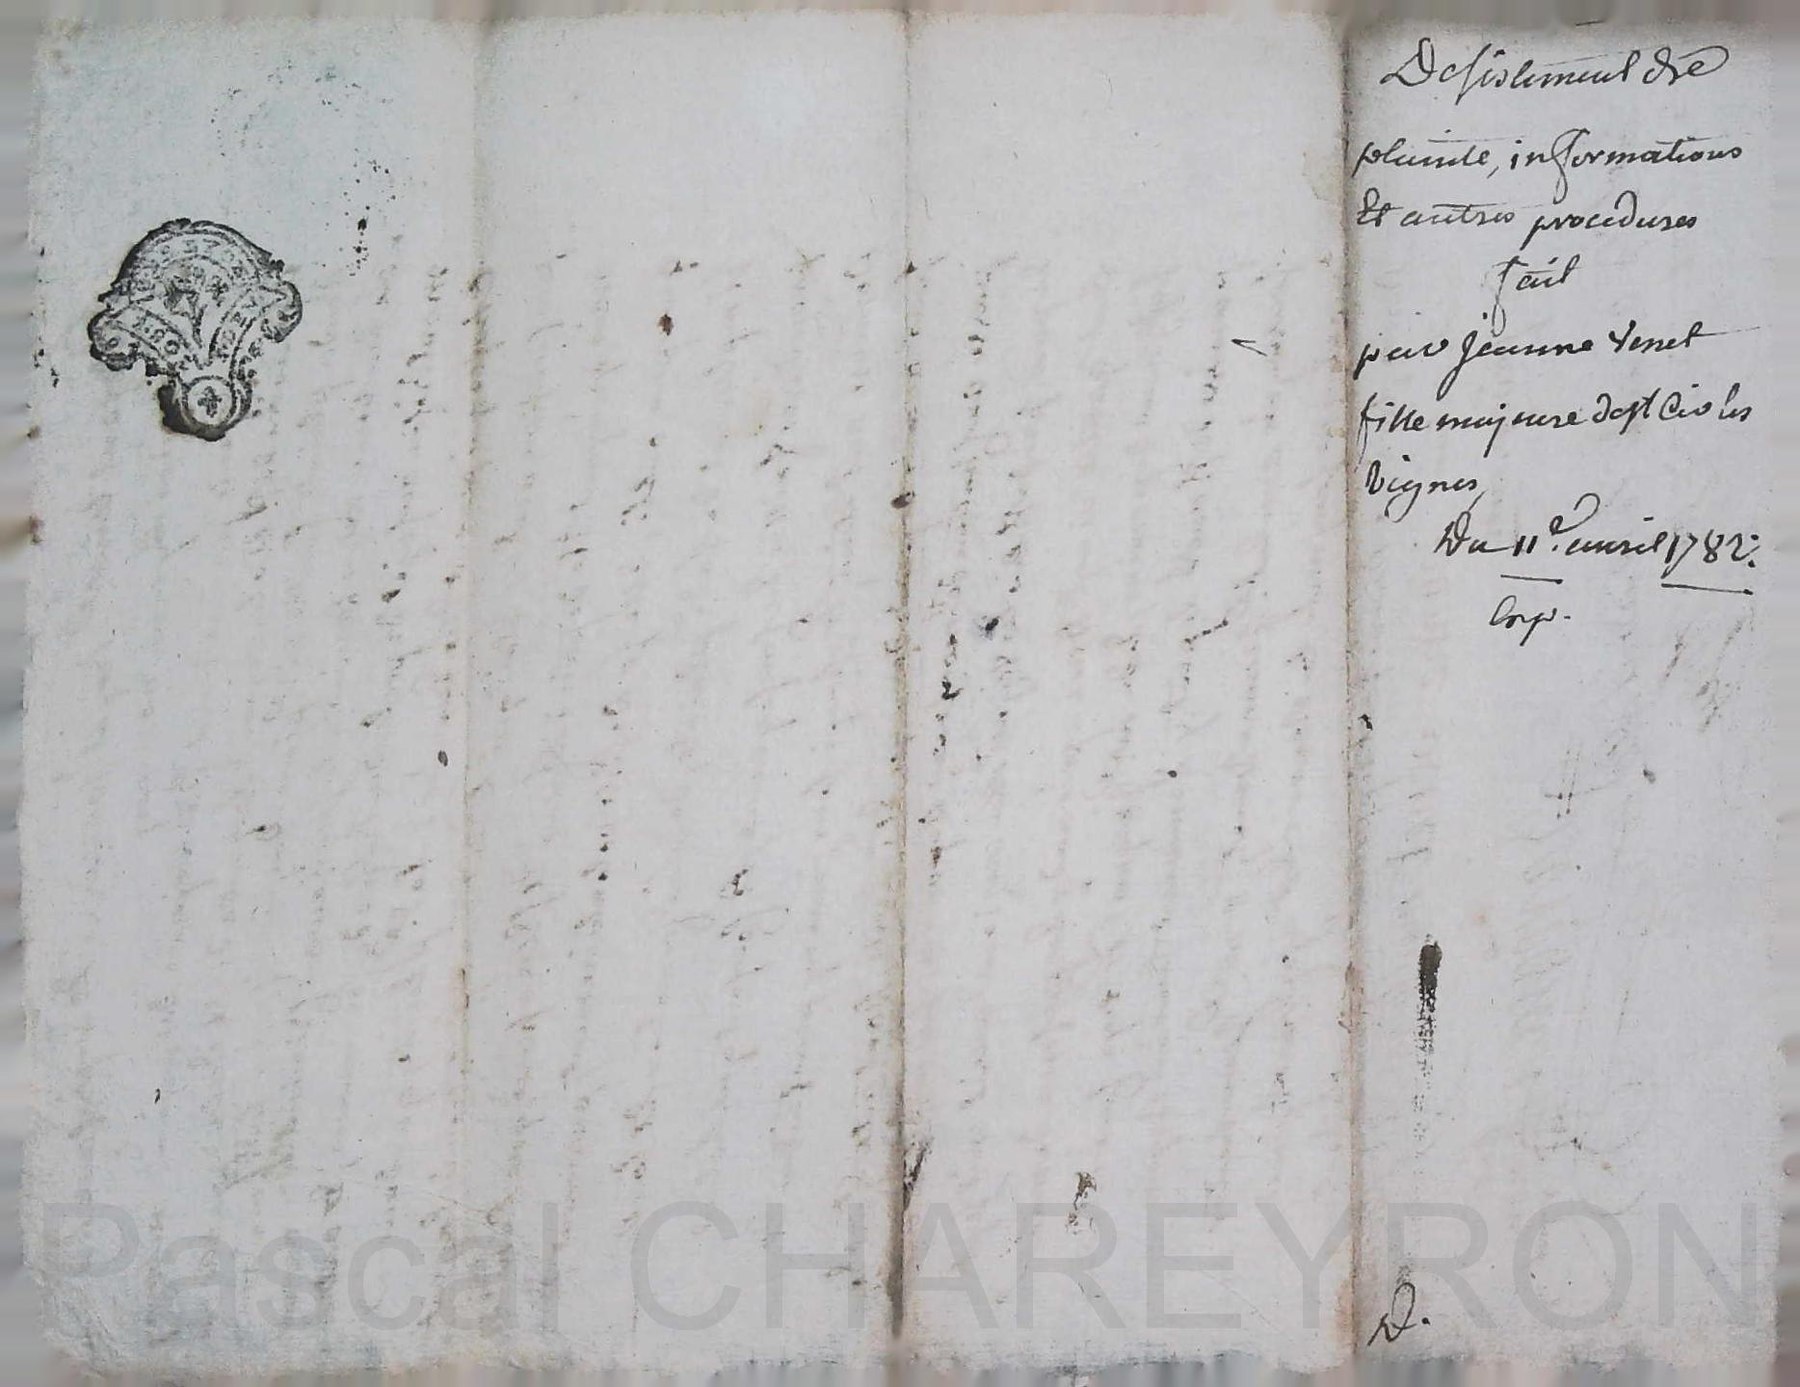 Desistement de
plainte, informations
Et autres procedures
fait
par jeanne venet
fille majeure de st Cir les
vignes
Du 11e. avril 1782.
Exp.
D.
Pascal CHAREYRON